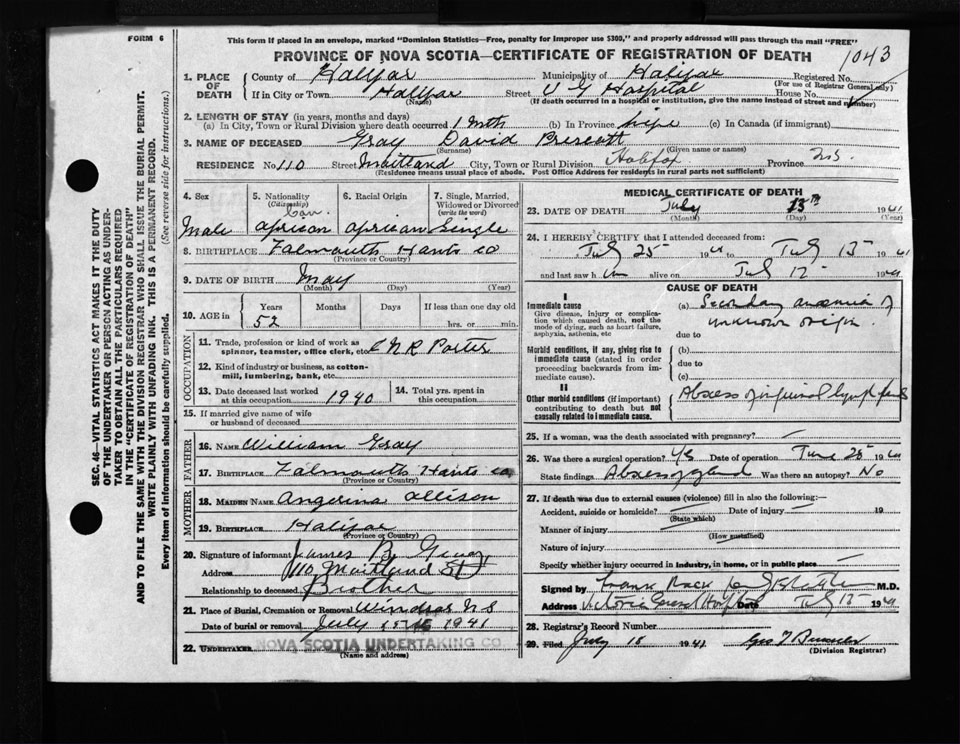 FORM 6
This form if placed in an envelope, marked "Dominion Statistics—Free, penalty for improper use $300," and properly addressed will pass through the mail "FREE"
PROVINCE OF NOVA SCOTIA—CERTIFICATE OF REGISTRATION OF DEATH
1043
1. PLACE OF DEATH { County of Halifax Municipality of Halifax Registered No.
(For use of Registrar General only)
If in City or Town Halifax Street V G Hospital House No.
(Name) (If death occurred in a hospital or institution, give the name instead of street and number)
2. LENGTH OF STAY (in years, months and days)
(a) In City, Town or Rural Division where death occurred 1 Mth (b) In Province life (c) In Canada (if immigrant)
3. NAME OF DECEASED Gray David Prescott
(Surname) (Given name or names)
RESIDENCE No 110 Street Maitland City, Town or Rural Division Halifax Province N.S.
(Residence means usual place of abode. Post Office Address for residents in rural parts not sufficient)
4. Sex 5. Nationality (Citizenship) 6. Racial Origin 7. Single, Married, Widowed or Divorced (write the word)
Can.
Male african african Single
8. BIRTHPLACE Falmouth Hants Co
(Province or Country)
9. DATE OF BIRTH May
(Month) (Day) (Year)
10. AGE in { Years Months Days If less than one day old
52 hrs. or min.
OCCUPATION
11. Trade, profession or kind of work as spinner, teamster, office clerk, etc. C N R Porter
12. Kind of industry or business, as cotton-mill, lumbering, bank, etc.
13. Date deceased last worked at this occupation 1940 14. Total yrs. spent in this occupation
15. If married give name of wife or husband of deceased
FATHER
16. NAME William Gray
17. BIRTHPLACE Falmouth Hants Co
(Province or Country)
MOTHER
18. MAIDEN NAME Angelina Allison
19. BIRTHPLACE Halifax
(Province or Country)
20. Signature of informant James B. Gray
Address 110 Maitland St
Relationship to deceased Brother
21. Place of Burial, Cremation or Removal Windsor N S
Date of burial or removal July 15 1941
22. UNDERTAKER NOVA SCOTIA UNDERTAKING CO.
(Name and Address)
MEDICAL CERTIFICATE OF DEATH
23. DATE OF DEATH July 13th 1941
(Month) (Day) (Year)
24. I HEREBY CERTIFY that I attended deceased from:
25 1941 to 1941
and last saw h im alive on 12 1941
CAUSE OF DEATH
I
Immediate cause
Give disease, injury or complication which caused death, not the mode of dying, such as heart failure, asphyxia, asthenia, etc
(a) Secondary anaemia of unknown origin
due to
Morbid conditions, if any, giving rise to immediate cause (stated in order proceeding backwards from immediate cause).
(b)
due to
(c)
II
Other morbid conditions (if important) contributing to death but not causally related to immediate cause.
Abscess of inguinal lymph glands
25. If a woman, was the death associated with pregnancy? —
26. Was there a surgical operation? Yes Date of operation June 28 1941
State findings Abscess gland Was there an autopsy? No
27. If death was due to external causes (violence) fill in also the following:—
Accident, suicide or homicide? Date of injury 19
(State which)
Manner of injury
(How sustained)
Nature of injury
Specify whether injury occurred in industry, in home, or in public place
Signed by Frank Rack M.D.
Address Victoria General Hospital Date 1941
28. Registrar's Record Number
29. Filed July 18 1941 Geo
(Division Registrar)
SEC. 46—VITAL STATISTICS ACT MAKES IT THE DUTY
OF THE UNDERTAKER OR PERSON ACTING AS UNDER-
TAKER TO OBTAIN ALL THE PARTICULARS REQUIRED
IN THE "CERTIFICATE OF REGISTRATION OF DEATH"
AND TO FILE THE SAME WITH THE DIVISION REGISTRAR WHO SHALL ISSUE THE BURIAL PERMIT.
WRITE PLAINLY WITH UNFADING INK. THIS IS A PERMANENT RECORD.
Every item of information should be carefully supplied. (See reverse side for instructions.)